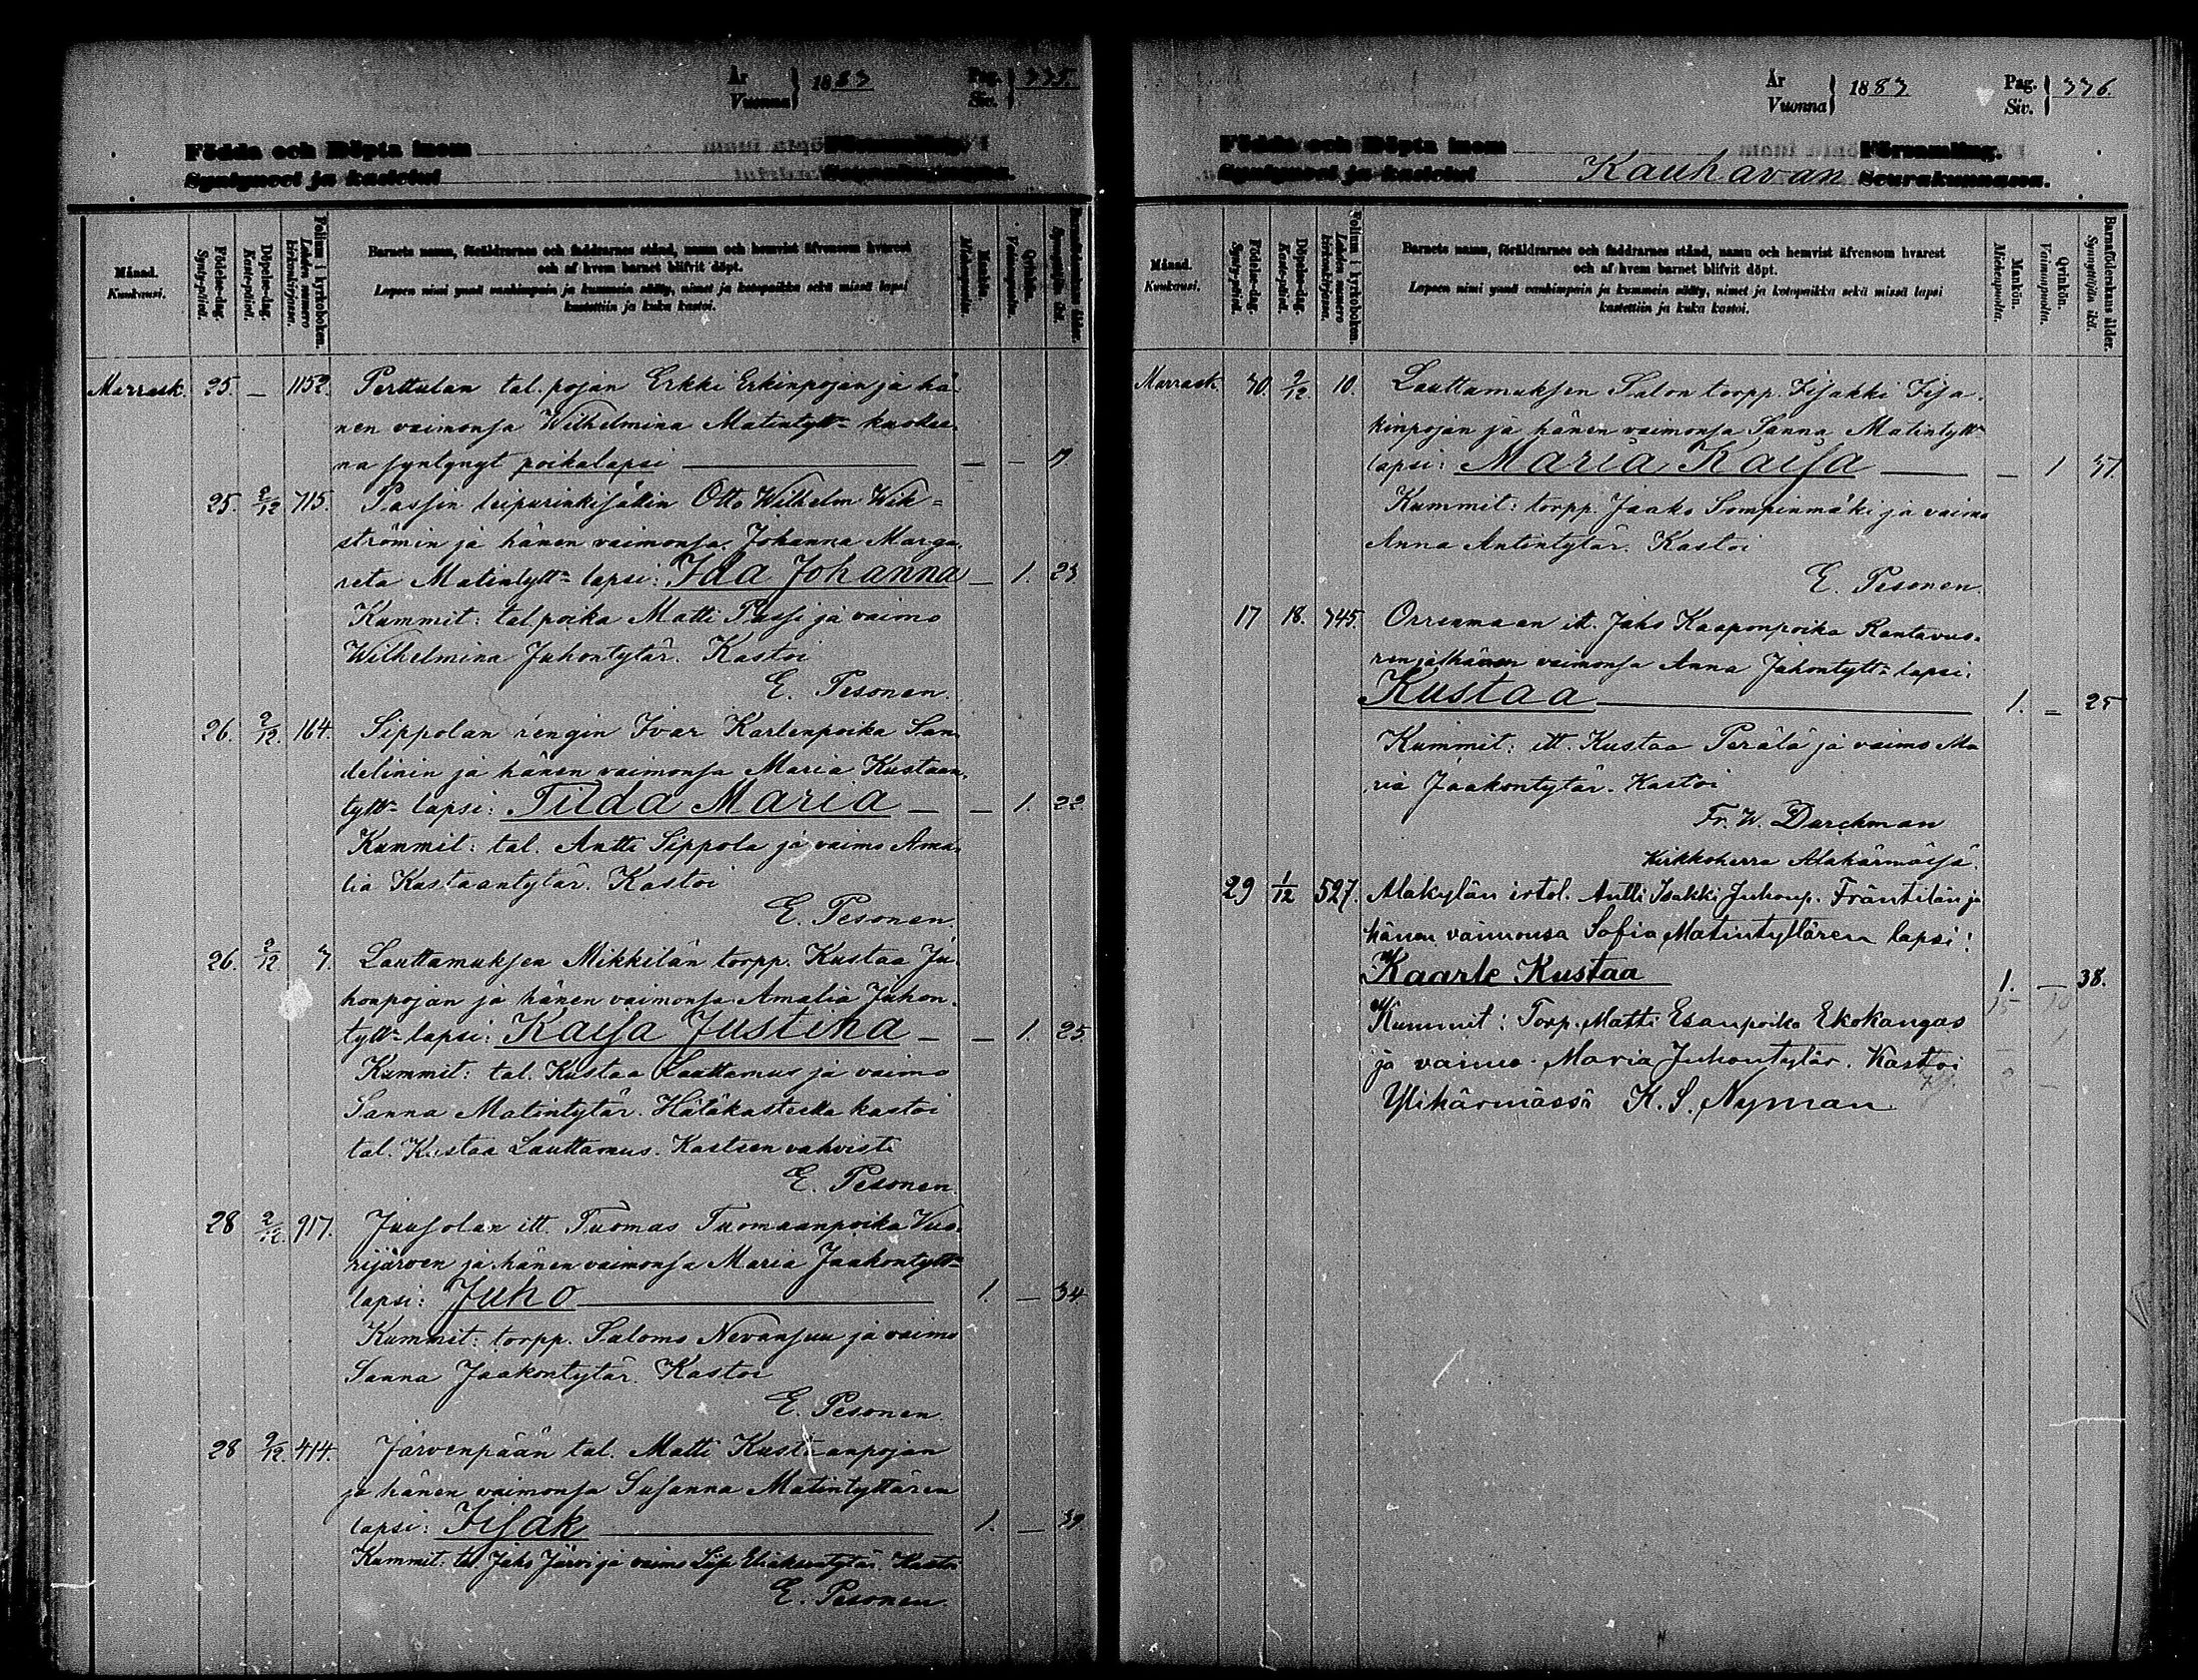 År
Vuonna } 1883 Pag.
Siv. } 335.
Födda och Döpta inom
Syntyneet ja kastetut
Månad.
Kuukausi.
Födelse-dag.
Synty-päivä.
Döpelse-dag.
Kaste-päivä.
Folium i kyrkoboken.
Lehden numero kirkonkirjassa.
Barnets namn, föräldrarnes och faddrarnes stånd, namn och hemvist äfvensom hvarest
och af hvem barnet blifvit döpt.
Lapsen nimi ynnä vanhimpain ja kummein sääty, nimet ja kotopaikka sekä missä lapsi
kastettiin ja kuka kastoi.
Mankön.
Miehenpuolia.
Qvinkön.
Vaimonpuolia.
Barnaföderskans ålder.
Synnyttäjän ikä.
Marrask. 25. — 1152. Perttulan tal. pojan Erkki Erkinpojan ja hä-
nen vaimonsa Wilhelmina Matintytt= kuollee-
na syntynyt poikalapsi — —
25. 2/12 715. Passin leipurinkisällin Otto Wilhelm Wik=
strömin ja hänen vaimonsa Johanna Marga-
reta Matintytt= lapsi: Ida Johanna — 1. 23.
Kummit: tal. poika Matti Passi ja vaimo
Wilhelmina Juhontytär. Kastoi
E. Pesonen.
26. 2/12. 164. Sippolan rengin Ivar Karlenpoika San-
delinin ja hänen vaimonsa Maria Kustaan-
tytt= lapsi: Tilda Maria — — 1. 22.
Kummit: tal. Antti Sippola ja vaimo Ama-
lia Kustaantytär. Kastoi
E. Pesonen.
26. 2/12. 7. Lauttamuksen Mikkilän torpp. Kustaa Ju-
honpojan ja hänen vaimonsa Amalia Juhon-
tytt= lapsi: Kaisa Justina — — 1. 25.
Kummit: tal. Kustaa Lauttamus ja vaimo
Sanna Matintytär. Hätäkasteella kastoi
tal. Kustaa Lauttamus. Kasteen vahvisti
E. Pesonen.
28 2/12. 917. Juusolan itt. Tuomas Tuomaanpoika Vuo-
rijärven ja hänen vaimonsa Maria Jaakontytt=
lapsi: Juho 1. — 34.
Kummit: torpp. Salomo Nevansuu ja vaimo
Sanna Jaakontytär. Kastoi
E. Pesonen.
28 2/12. 414. Järvenpään tal. Matti Kustaanpojan
ja hänen vaimonsa Susanna Matintyttären
lapsi: Iisak 1. — 39.
Kummit: tal. Juho Järvi ja vaimo Liisa Kastoi
E. Pesonen.
År
Vuonna } 1883 Pag.
Siv. } 336.
Födda och Döpta inom Församling.
Syntyneet ja kastetut Kauhavan Seurakunnassa.
Månad.
Kuukausi.
Födelse-dag.
Synty-päivä.
Döpelse-dag.
Kaste-päivä.
Folium i kyrkoboken.
Lehden numero kirkonkirjassa.
Barnets namn, föräldrarnes och faddrarnes stånd, namn och hemvist äfvensom hvarest
och af hvem barnet blifvit döpt.
Lapsen nimi ynnä vanhimpain ja kummein sääty, nimet ja kotopaikka sekä missä lapsi
kastettiin ja kuka kastoi.
Mankön.
Miehenpuolia.
Qvinkön.
Vaimonpuolia.
Barnaföderskans ålder.
Synnyttäjän ikä.
Marrask. 30. 2/12 10. Lauttamuksen Salon torpp. Iisakki Iisa-
kinpojan ja hänen vaimonsa Sanna Matintytt=
lapsi: Maria Kaisa — 1 37.
Kummit: torpp. Jaako Sompinmäki ja vaimo
Anna Antintytär. Kastoi
E. Pesonen.
17 18. 745. Orrenmaan itt. Juho Kaaponpoika Rantavuo-
ren ja hänen vaimonsa Anna Juhontytt= lapsi:
Kustaa 1. — 25
Kummit: itt. Kustaa Perälä ja vaimo Ma
ria Jaakontytär. Kastoi
Fr. W. Durchman
Kirkkoherra Alahärmässä.
29 1/12 527. Alakylän irtol. Antti Isakki Juhonp. Fräntilän ja
hänen vaimonsa Sofia Matintyttären lapsi:
Kaarle Kustaa 1. — 38.
Kummit: Torp. Matti Esanpoika Ekokangas
ja vaimo Maria Juhontytär. Kastoi
Ylihärmässä K. S. Nyman.